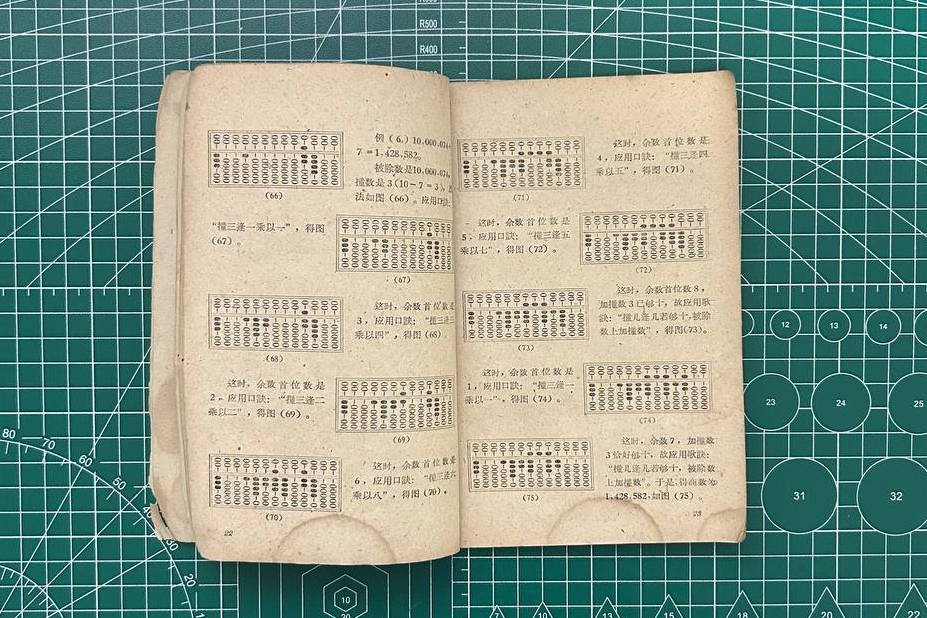 例（6.）10,000,074÷
7＝1,428,582。
被除数是10,000,074,
撞数是3（10－7＝3），
法如图（66）。应用口訣：
(66)
“撞三逢一乘以一”，得图
（67）。
(67)
这时，余数首位数是
3，应用口訣：“撞三逢三
乘以四”，得图（68）
(68)
这时，余数首位数是
2，应用口訣：“撞三逢二
乘以二”，得图（69）。
(69)
这时，余数首位数是
6，应用口訣：“撞三逢六
乘以八”，得图（70）。
(70)
22
这时，余数首位数是
4，应用口訣：“撞三逢四
乘以五”，得图（71）。
(71)
这时，余数首位数是
5，应用口訣：“撞三逢五
乘以七”，得图（72）。
(72)
这时，余数首位数8，
加撞数3已够十，故应用歌
訣：“撞几逢几若够十，被除
数上加撞数”，得图（73）。
(73)
这时，余数首位数是
1，应用口訣：“撞三逢一
乘以一”，得图（74）。
(74)
这时，余数7，加撞数
3恰好够十，故应用歌訣：
“撞几逢几若够十，被除数
上加撞数”。于是得商数为
1,428,582，如图（75）。
(75)
23
R500
R400
12
13
14
23
24
25
31
32
80
70
60
50
40
30
20
10
7
10
13
15
18
20
22